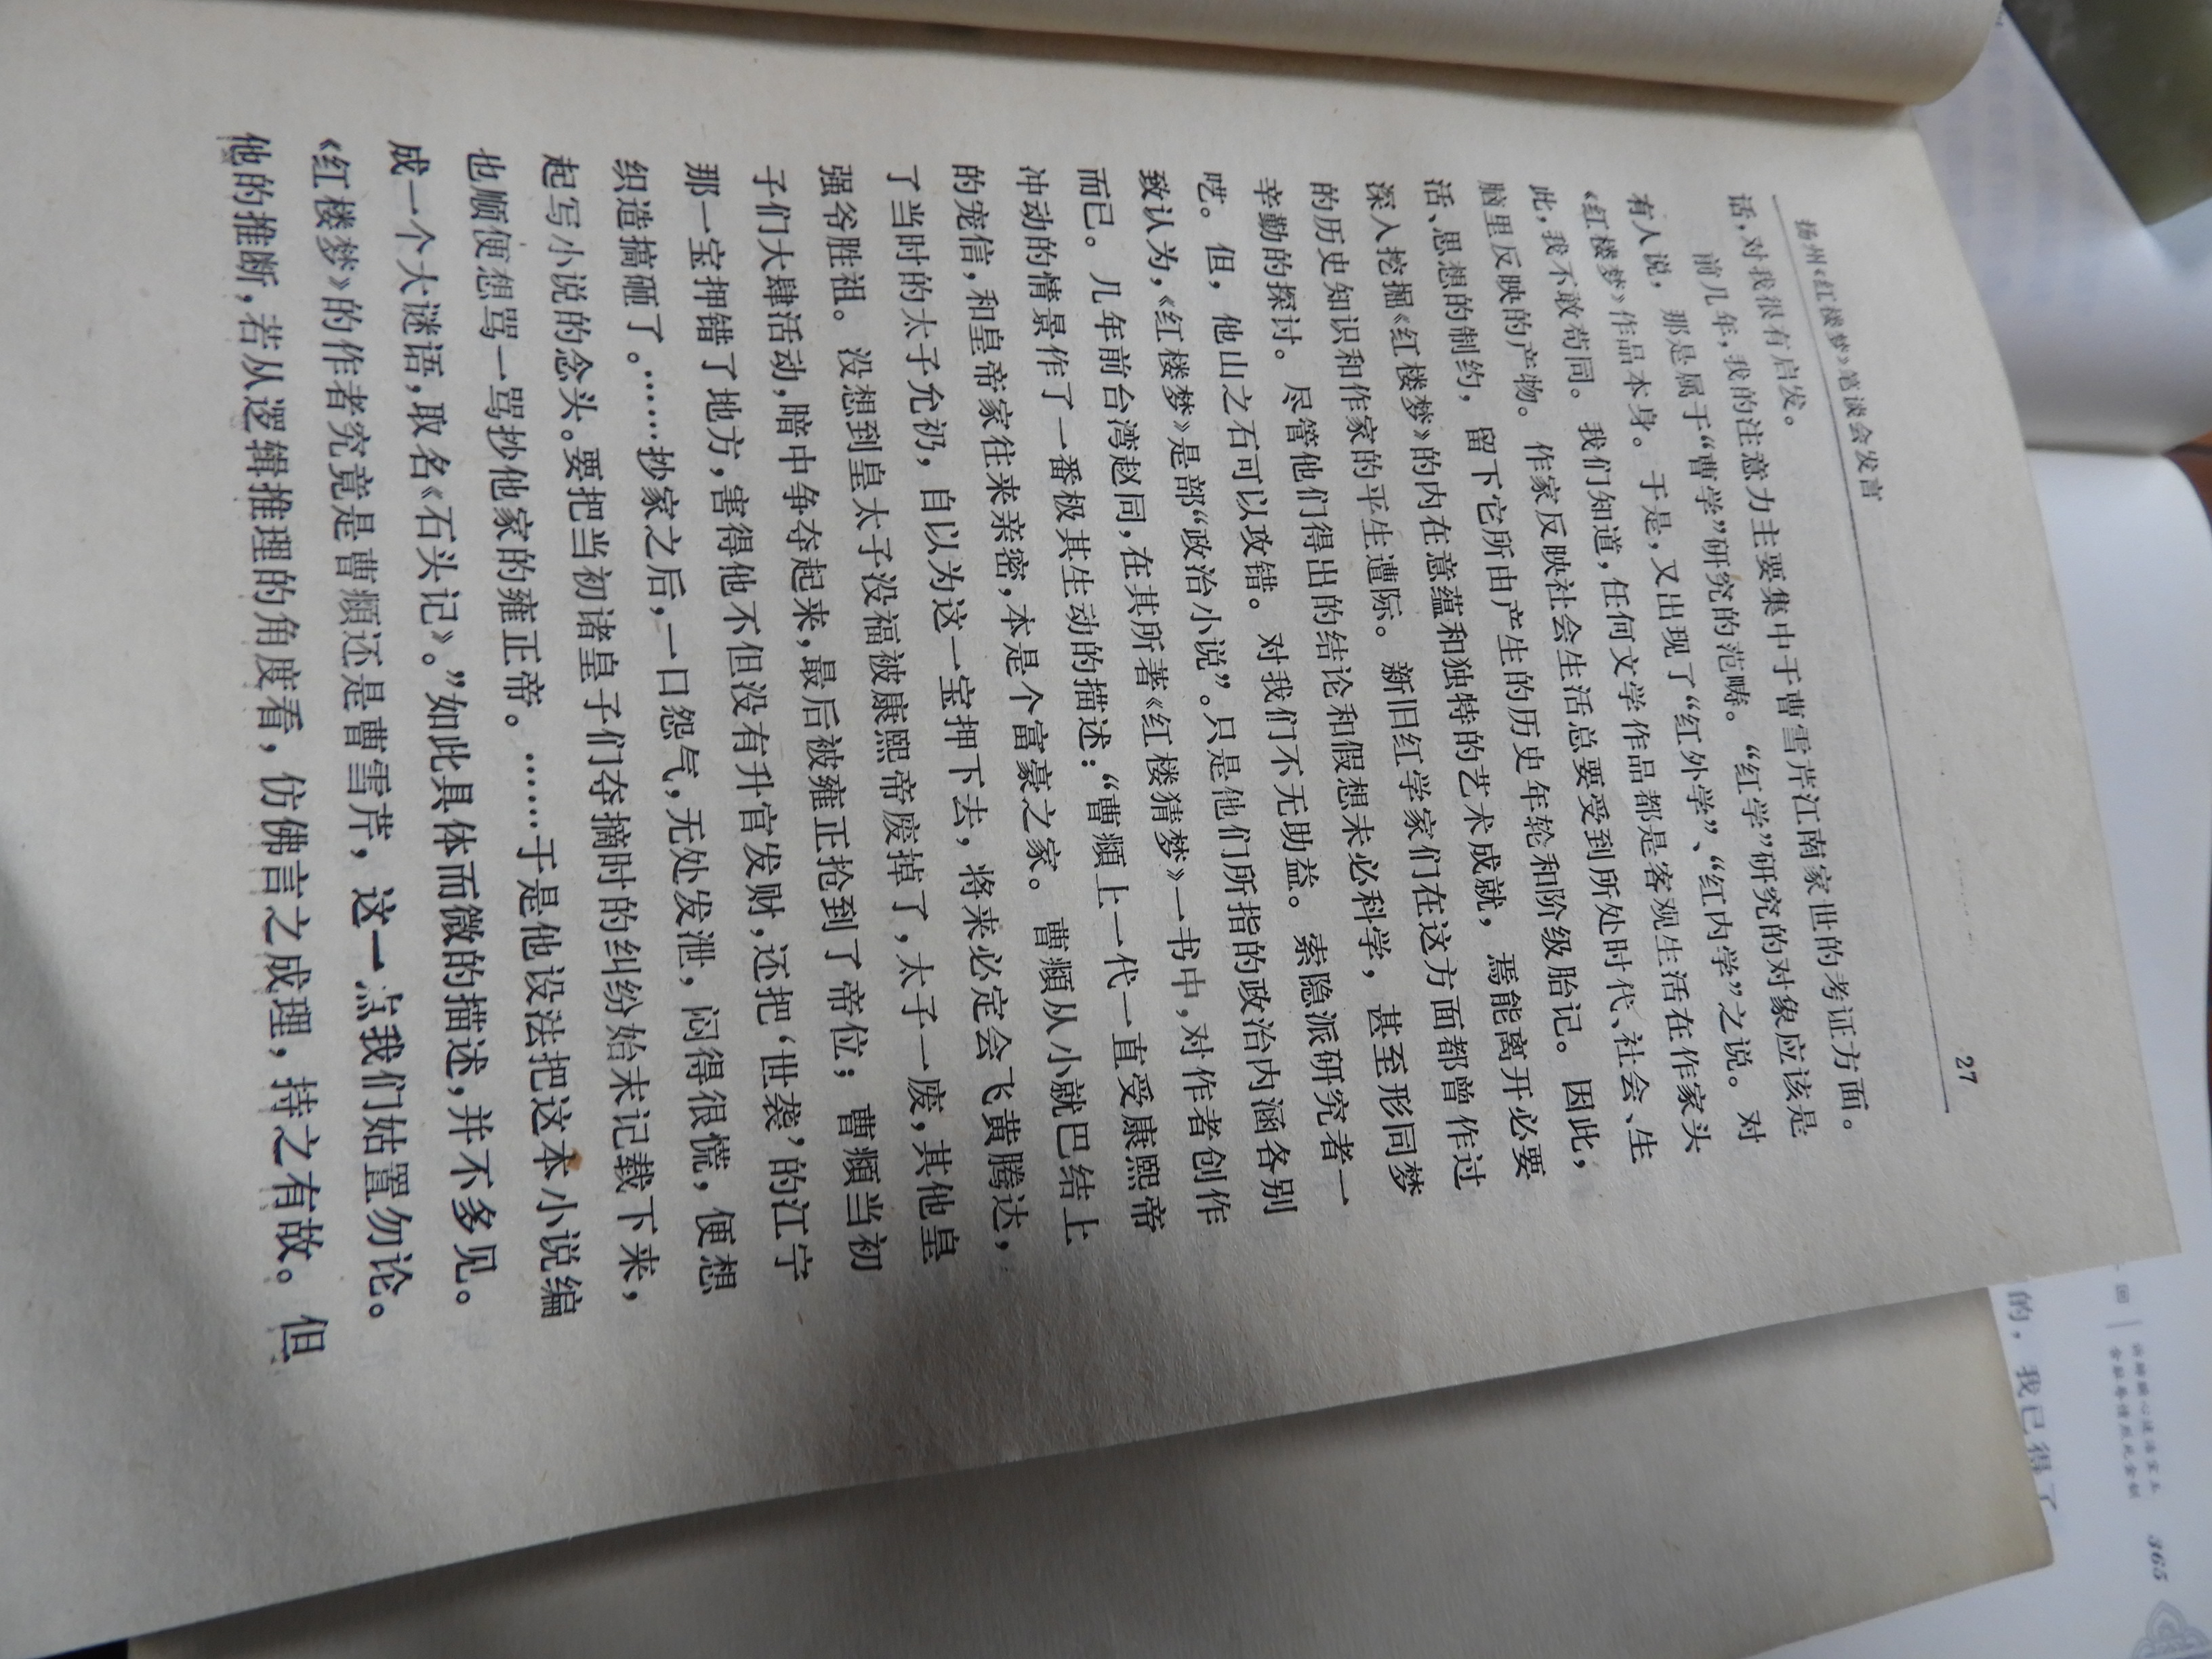 扬州《红楼梦》笔谈会发言
27
活，对我很有启发。
前几年，我的注意力主要集中于曹雪芹江南家世的考证方面。
有人说，那是属于“曹学”研究的范畴。“红学”研究的对象应该是
《红楼梦》作品本身。于是，又出现了“红外学”、“红内学”之说。对
此，我不敢苟同。我们知道，任何文学作品都是客观生活在作家头
脑里反映的产物。作家反映社会生活总要受到所处时代、社会、生
活、思想的制约，留下它所由产生的历史年轮和阶级胎记。因此，
深入挖掘《红楼梦》的内在意蕴和独特的艺术成就，焉能离开必要
的历史知识和作家的平生遭际。新旧红学家们在这方面都曾作过
辛勤的探讨。尽管他们得出的结论和假想未必科学，甚至形同梦
呓。但，他山之石可以攻错。对我们不无助益。索隐派研究者一
致认为，《红楼梦》是部“政治小说”。只是他们所指的政治内涵各别
而已。几年前台湾赵同，在其所著《红楼猜梦》一书中，对作者创作
冲动的情景作了一番极其生动的描述：“曹頫上一代一直受康熙帝
的宠信，和皇帝家往来亲密，本是个富豪之家。曹頫从小就巴结上
了当时的太子允礽，自以为这一宝押下去，将来必定会飞黄腾达，
强爷胜祖。没想到皇太子没福被康熙帝废掉了，太子一废，其他皇
子们大肆活动，暗中争夺起来，最后被雍正抢到了帝位；曹頫当初
那一宝押错了地方，害得他不但没有升官发财，还把‘世袭’的江宁
织造搞砸了。……抄家之后，一口怨气，无处发泄，闷得很慌，便想
起写小说的念头。要把当初诸皇子们夺摘时的纠纷始末记载下来，
也顺便想骂一骂抄他家的雍正帝。……于是他设法把这本小说编
成一个大谜语，取名《石头记》。”如此具体而微的描述，并不多见。
《红楼梦》的作者究竟是曹頫还是曹雪芹，这一点我们姑置勿论。
他的推断，若从逻辑推理的角度看，仿佛言之成理，持之有故。但
的，我已得了
365